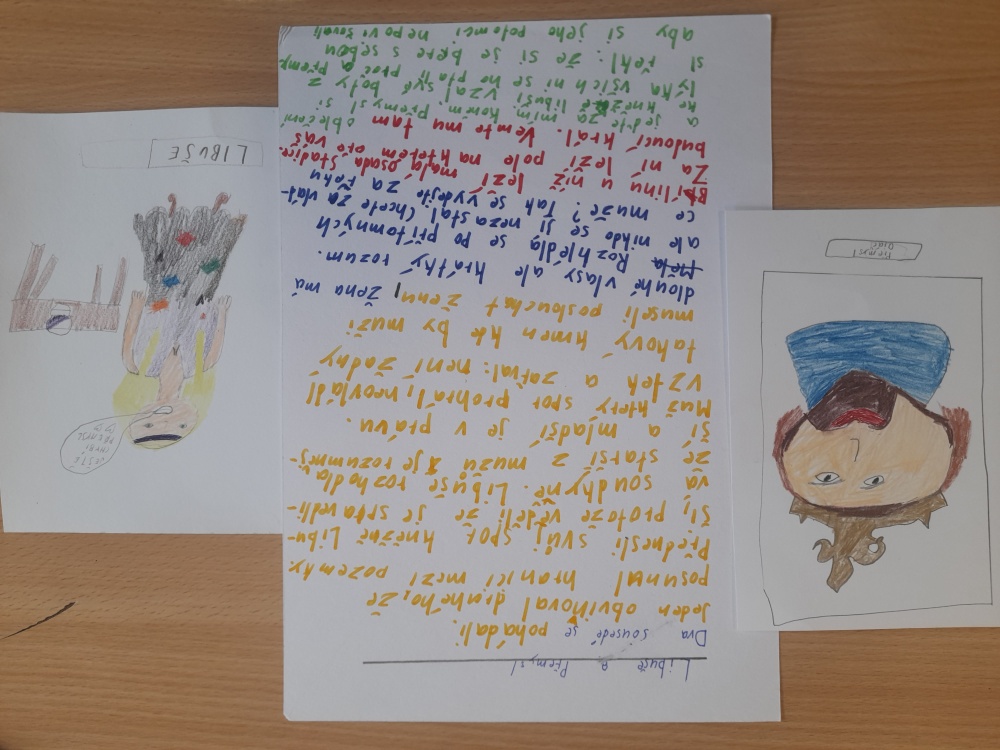 Libuše a Přemysl
Dva sousedé se pohádali.
Jeden obviňoval druhého, že
posunul hranici mezi pozemky.
Přednesli svůj spor kněžně Libu-
ši, protože věděli že je spravedli-
vá soudkyně. Libuše rozhodla
že starší z mužů je rozumněj-
ší a mladší je v právu.
Muž který spor prohrál, neovládl
vztek a zařval: není žádný
takový kmen kde by muži
museli poslouchat ženu, žena má
dlouhé vlasy ale krátký rozum.
Rozhlédla se po přítomných
ale nikdo se jí nezastal Chcete za vlád-
ce muže? Tak se vydejte za řeku
Bílinu u níž leží malá osada Stadice.
Za ní leží pole na kterém ore váš
budoucí král. Vemte mu tam oblečení
a jedte za mím koněm Přemysl si
ke kněžně libuši vzal své boty z
lýka všichni se ho ptali proč a přemy-
sl řekl: že si je bere s sebou
aby si jeho potomci nepovyšovali
LIBUŠE
Přemysl
Oráč